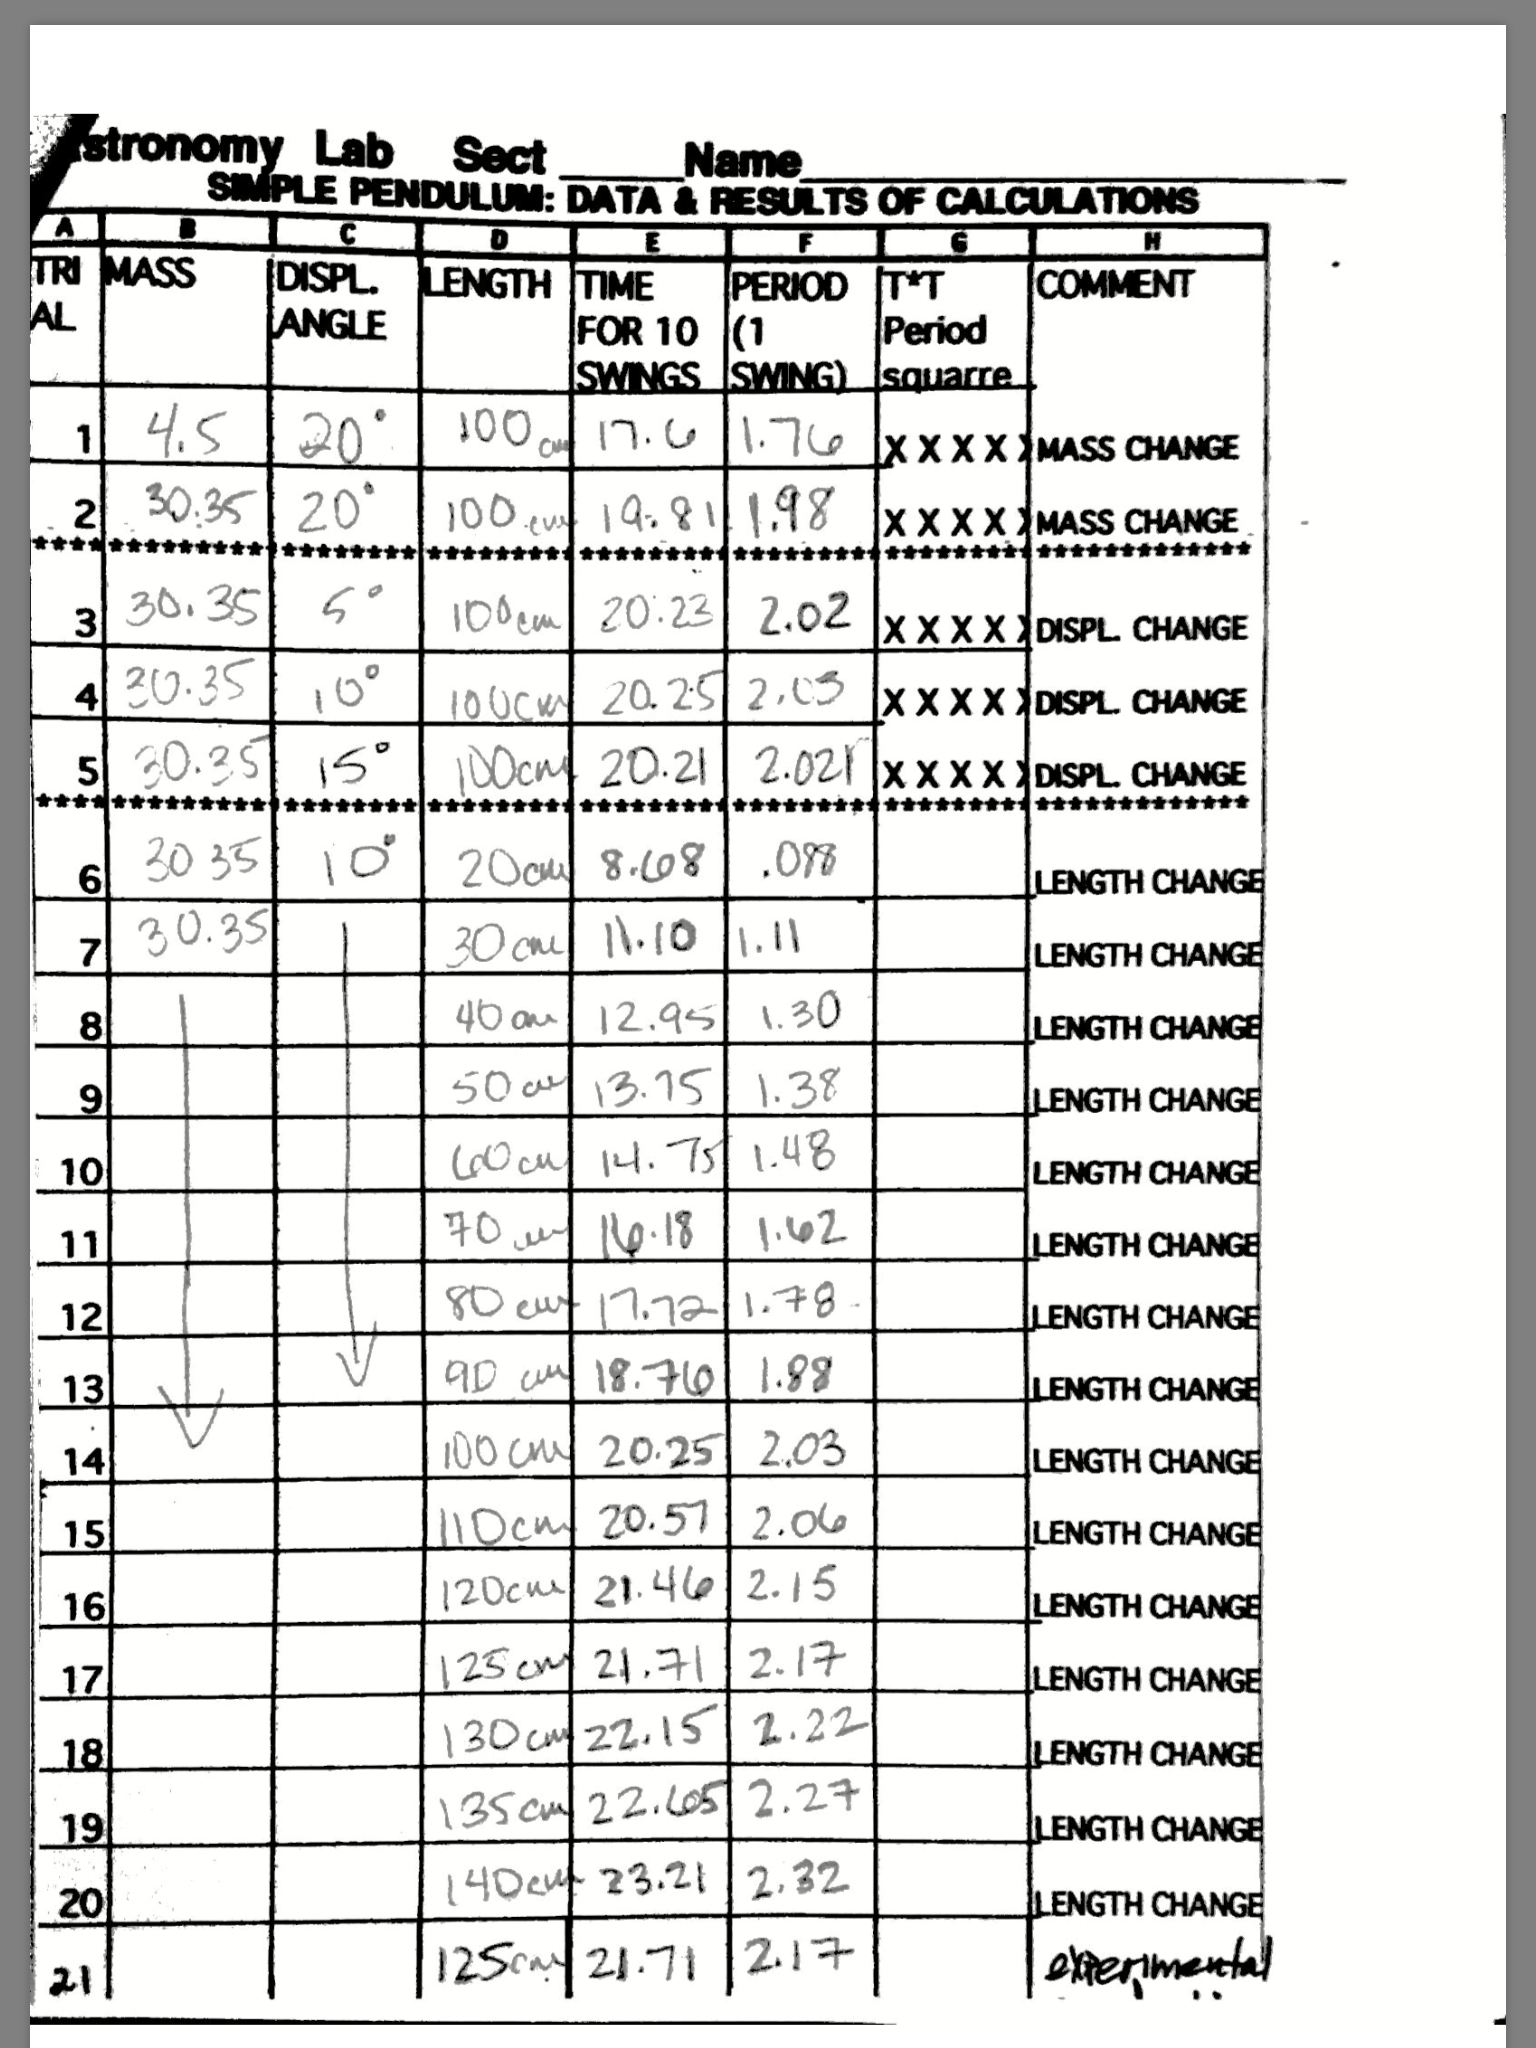 stronomy Lab Sect ____Name____
SIMPLE PENDULUM: DATA & RESULTS OF CALCULATIONS
A B C D E F G H
TRI MASS DISPL. LENGTH TIME PERIOD T*T COMMENT
AL ANGLE FOR 10 (1 Period
SWINGS SWING) squarre
1 4.5 20° 100 cm 17.6 1.76 X X X X X MASS CHANGE
2 30.35 20° 100 cm 19.81 1.98 X X X X X MASS CHANGE
3 30.35 5° 100cm 20.23 2.02 X X X X X DISPL. CHANGE
4 30.35 10° 100cm 20.25 2.03 X X X X X DISPL. CHANGE
5 30.35 15° 100cm 20.21 2.021 X X X X X DISPL. CHANGE
6 30 35 10° 20cm 8.68 LENGTH CHANGE
7 30.35 30cm 11.10 1.11 LENGTH CHANGE
8 40cm 12.95 1.30 LENGTH CHANGE
9 50cm 13.75 1.38 LENGTH CHANGE
10 60cm 14.75 1.48 LENGTH CHANGE
11 70cm 16.18 1.62 LENGTH CHANGE
12 80cm 17.72 1.78 LENGTH CHANGE
13 90 cm 18.76 1.88 LENGTH CHANGE
14 100cm 20.25 2.03 LENGTH CHANGE
15 110cm 20.57 2.06 LENGTH CHANGE
16 120cm 21.46 2.15 LENGTH CHANGE
17 125cm 21.71 2.17 LENGTH CHANGE
18 130cm 22.15 2.22 LENGTH CHANGE
19 135cm 22.65 2.27 LENGTH CHANGE
20 140cm 23.21 2.32 LENGTH CHANGE
21 125cm 21.71 2.17 experimental